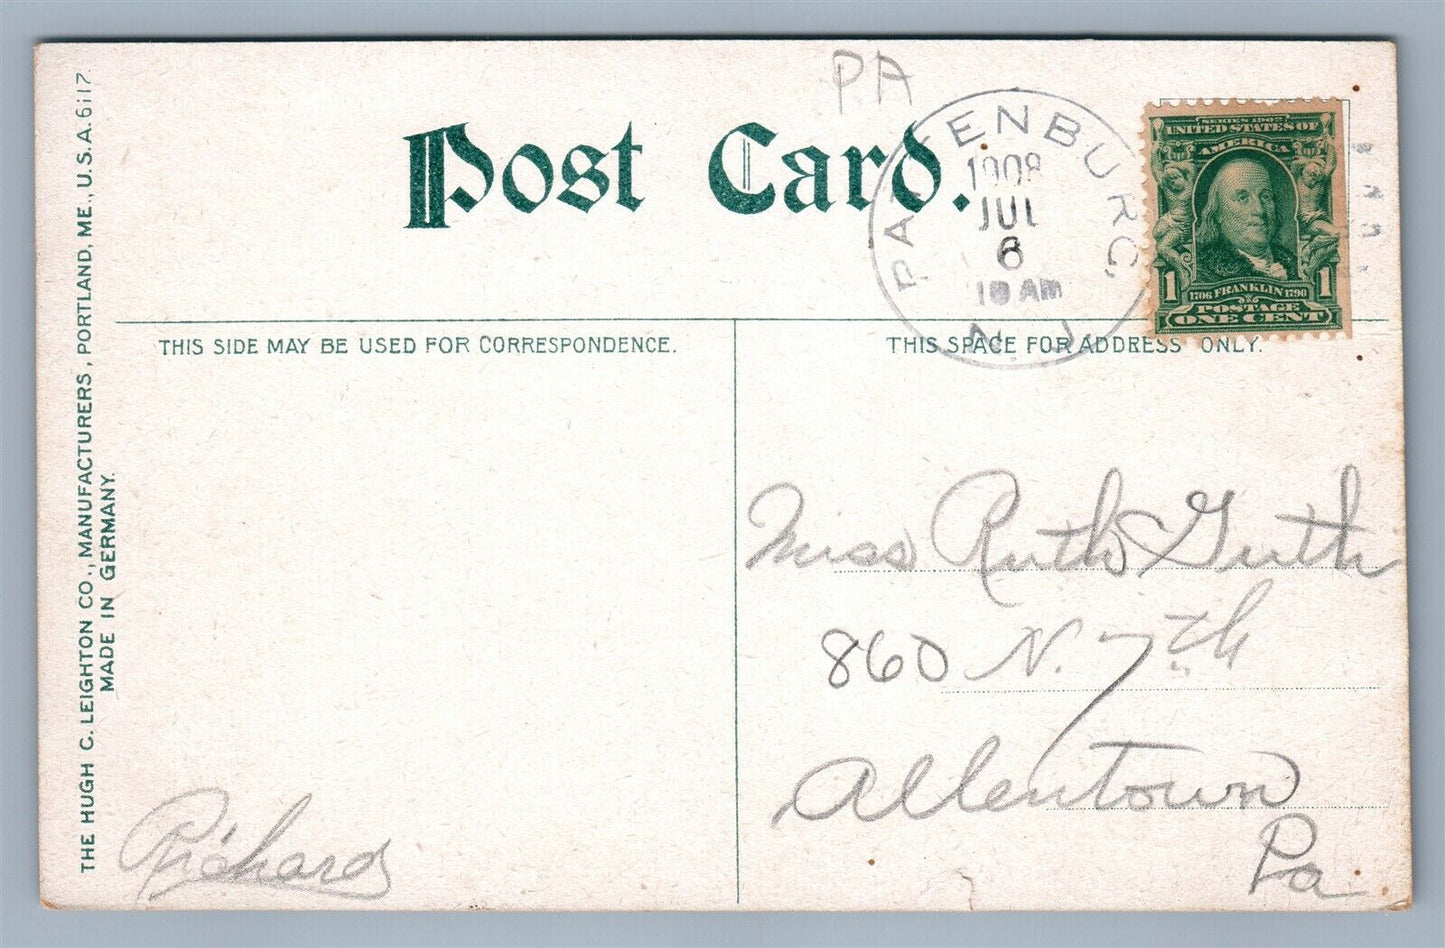 PA
Post Card.
PATTENBURG,
1908
JUL
6
10 AM
N. J.
SERIES 1902
UNITED STATES OF
AMERICA
1 1706 FRANKLIN 1790 1
POSTAGE
ONE CENT
THIS SIDE MAY BE USED FOR CORRESPONDENCE.
THIS SPACE FOR ADDRESS ONLY.
THE HUGH C. LEIGHTON CO., MANUFACTURERS, PORTLAND, ME., U.S.A. 6117
MADE IN GERMANY.
Miss Ruth Guth
860 N. 7th
Allentown
Pa
Richard